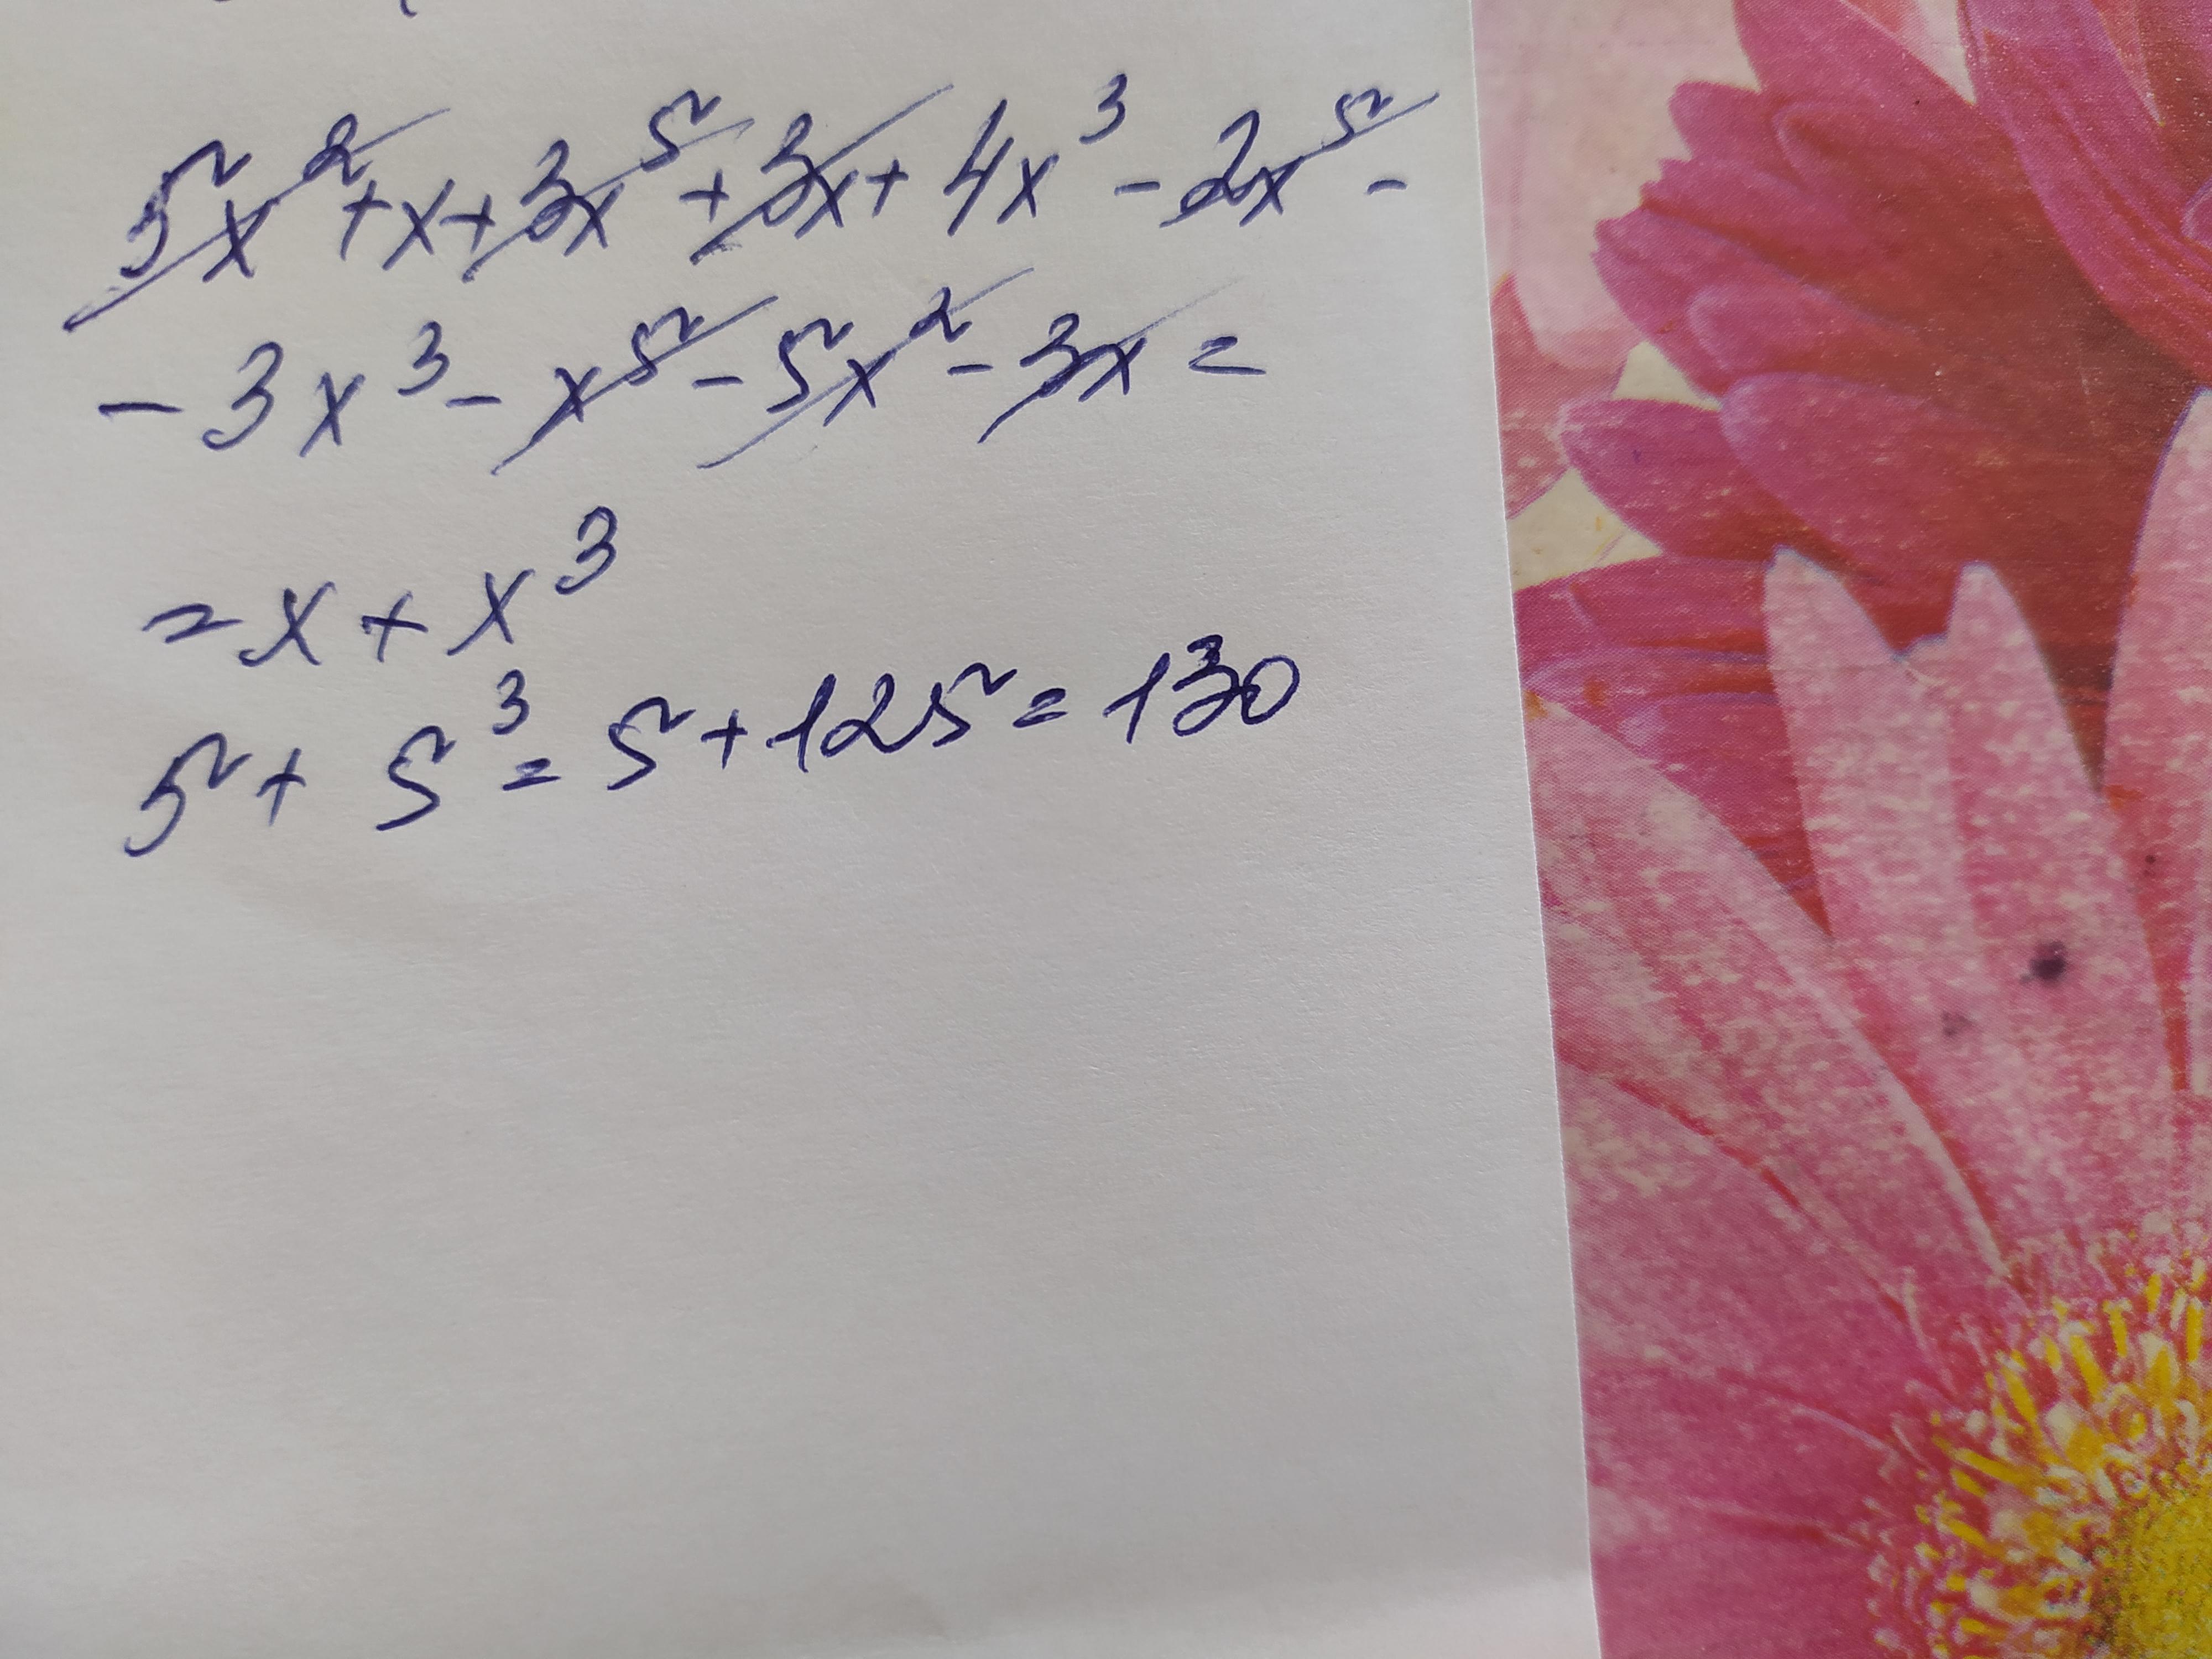 5x² + x + 3x⁵ + 3x + 4x³ - 2x⁵ -
- 3x³ - x⁵ - 5x² - 3x =
= x + x³
5 + 5³ = 5 + 125 = 130